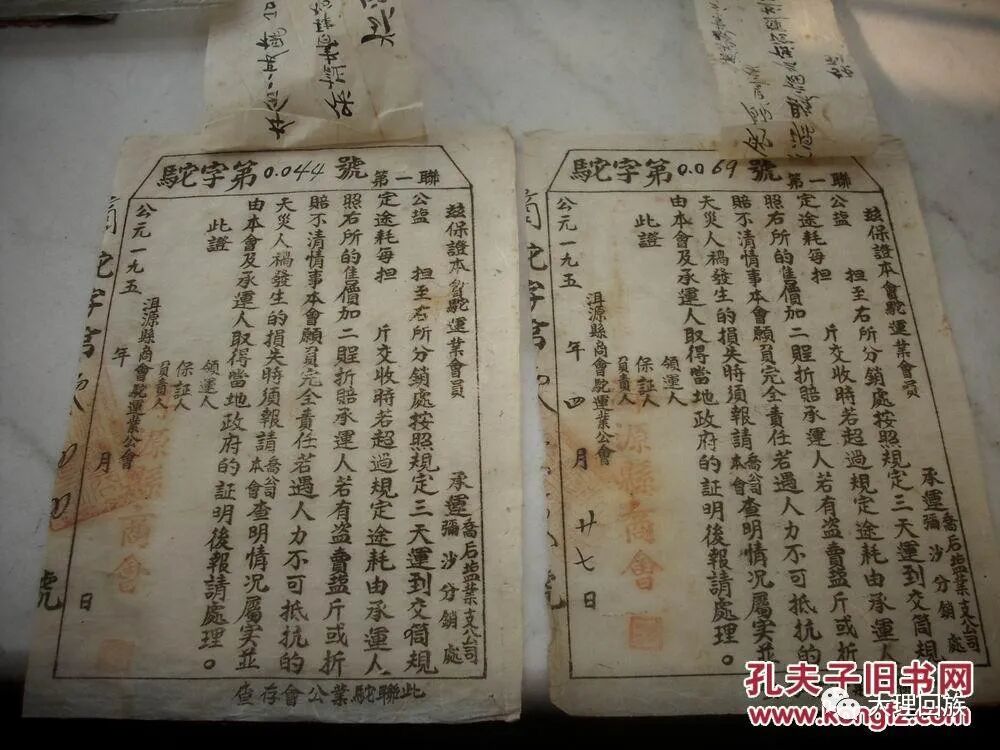 駝字第0.044號
第一聯
茲保證本會駝運業會員 承運喬后盐業支公司彌沙分銷處
公盐 担至右所分銷處按照規定三天運到交筒規
定途耗每担 斤交收時若超過規定途耗由承運人
照右所的售價加二賠折賠承運人若有盗賣盐斤或折
賠不清情事本會願負完全責任若遇人力不可抵抗的
天災人禍發生的損失時須報請喬公司本會查明情况屬实並
由本會及承運人取得當地政府的証明後報請處理。
此證
領運人
保証人
負責人
洱源縣商會駝運業公會
公元一九五 年 月 日
號
此聯駝業公會存查
駝字第0.069號
第一聯
茲保證本會駝運業會員 承運喬后盐業支公司彌沙分銷處
公盐 担至右所分銷處按照規定三天運到交筒規
定途耗每担 斤交收時若超過規定途耗由承運人
照右所的售價加二賠折賠承運人若有盗賣盐斤或折
賠不清情事本會願負完全責任若遇人力不可抵抗的
天災人禍發生的損失時須報請喬公司本會查明情况屬实並
由本會及承運人取得當地政府的証明後報請處理。
此證
領運人
保証人
負責人
洱源縣商會駝運業公會
源縣商會
公元一九五 年四月廿七日
號
孔夫子旧书网
www.kongfz.com
大理回族